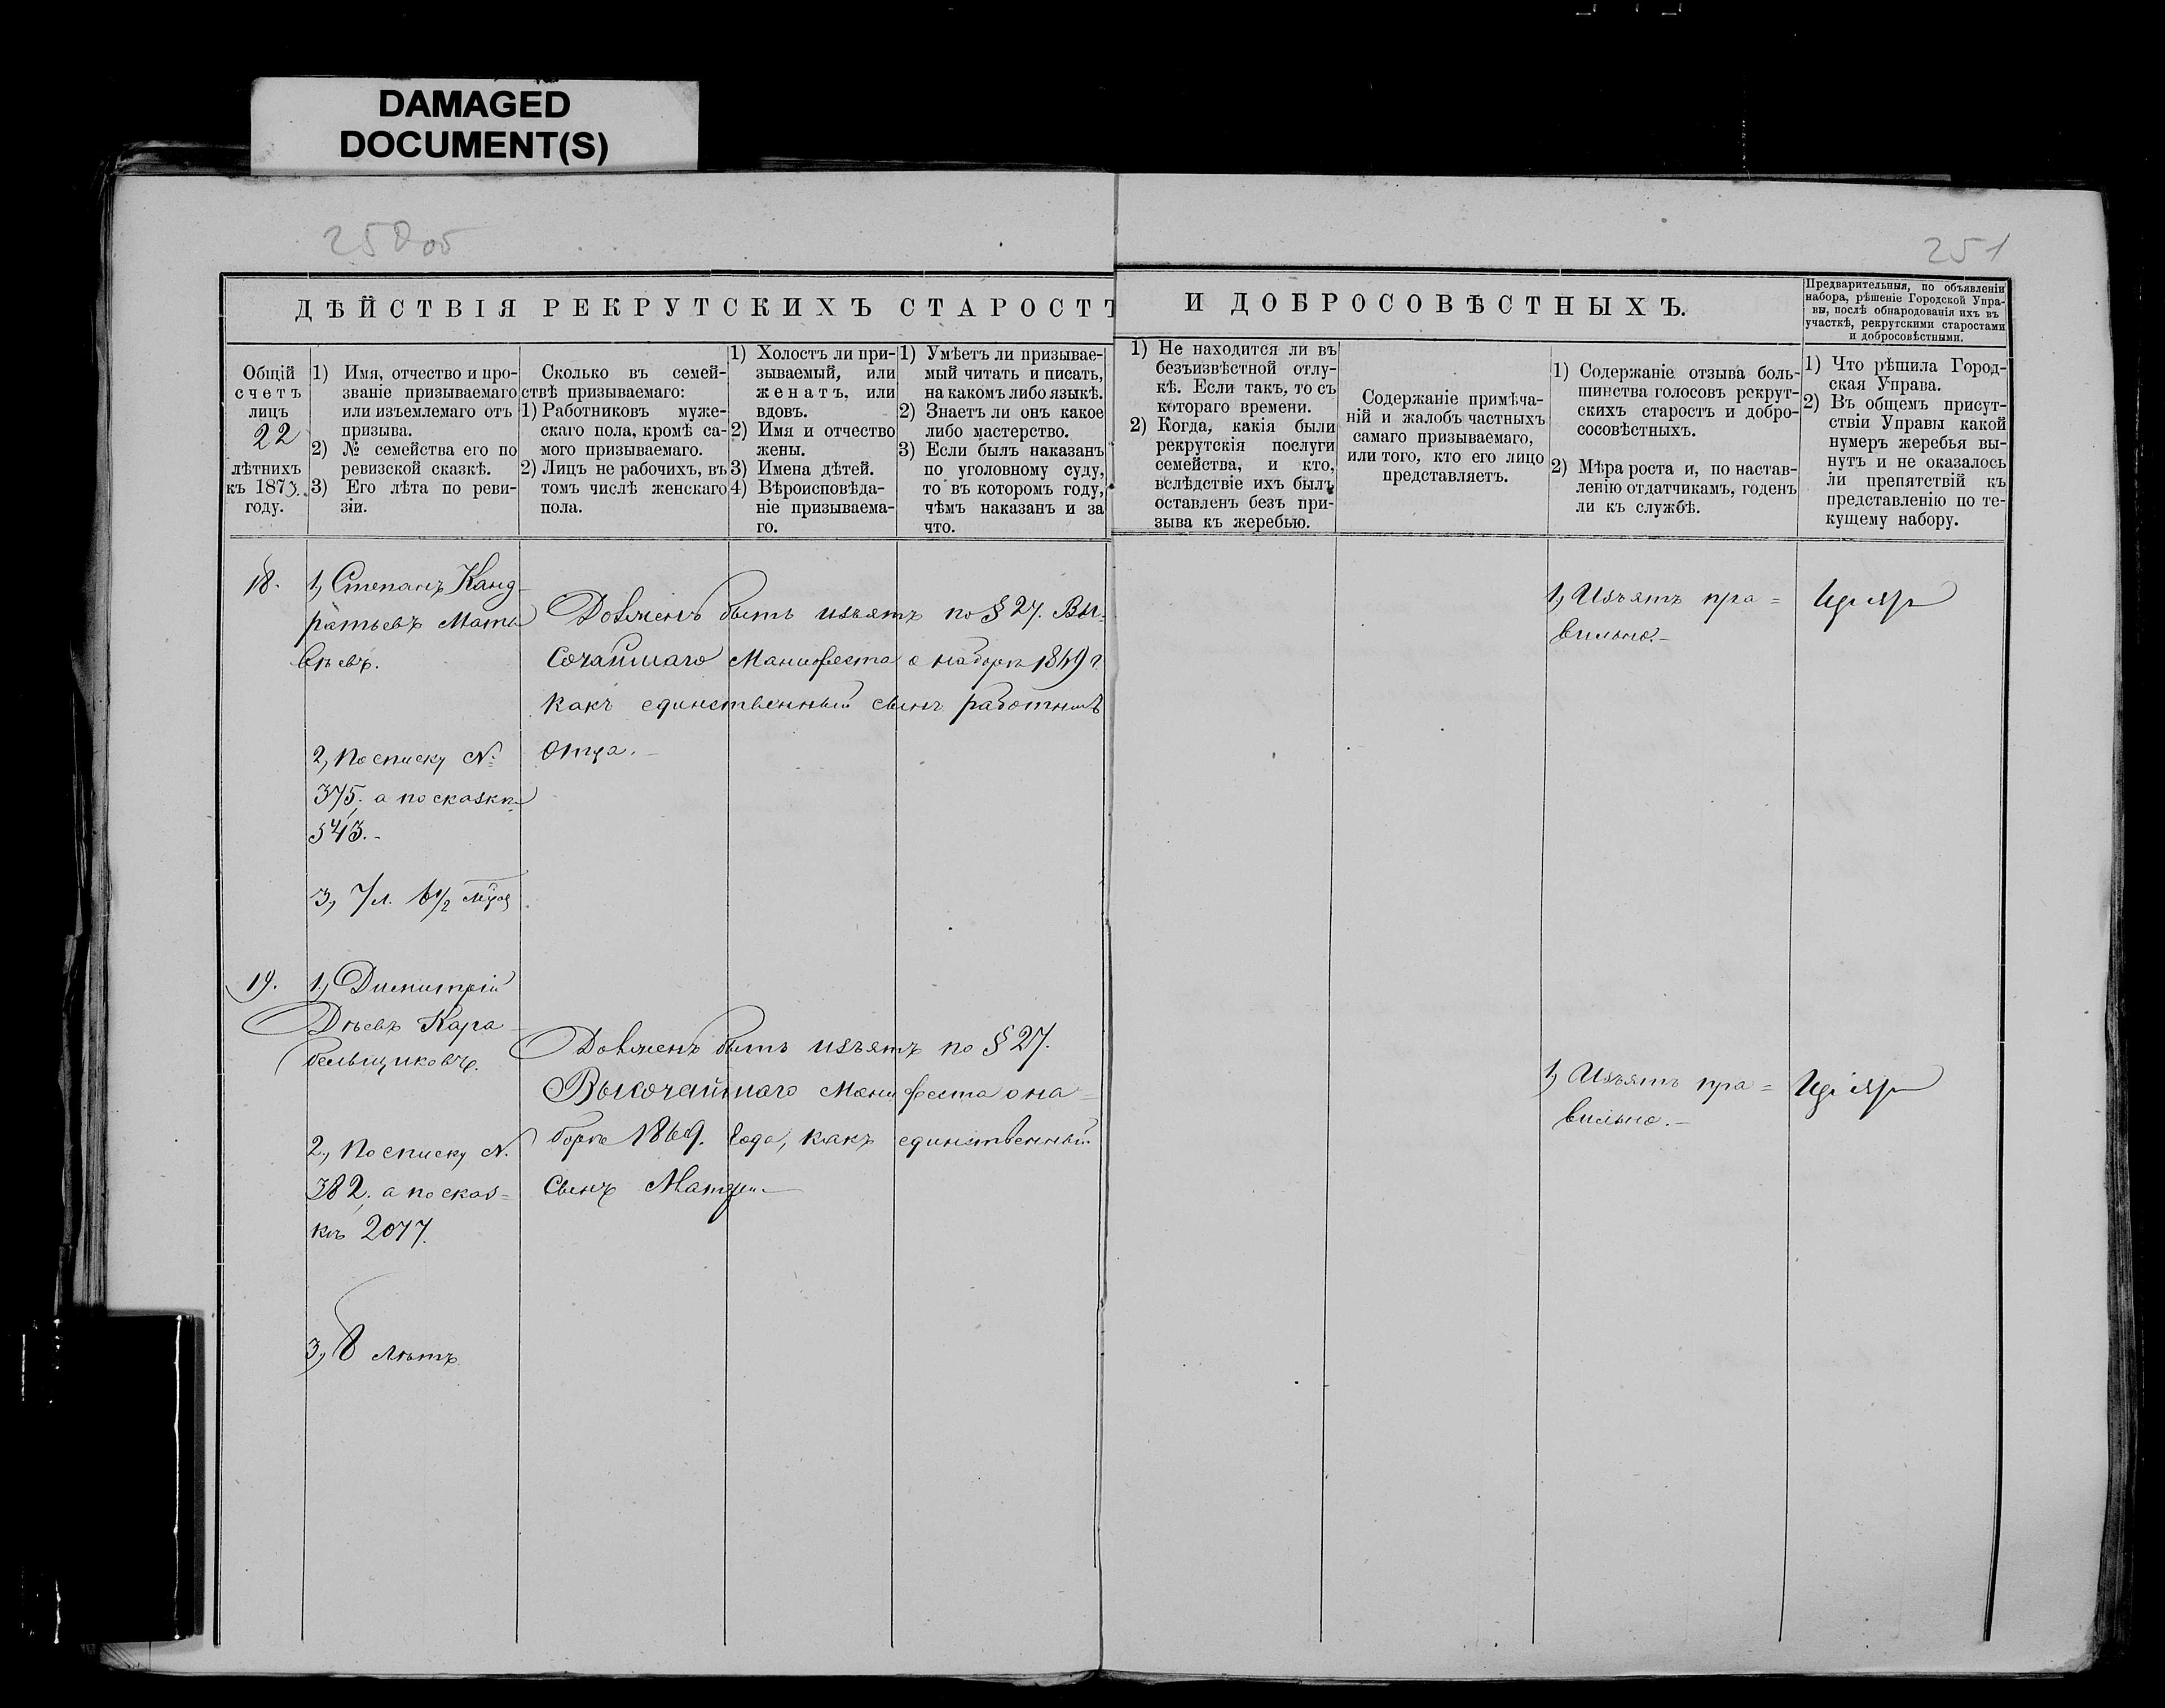 DAMAGED
DOCUMENT(S)
250об
251
ДѢЙСТВІЯ РЕКРУТСКИХЪ СТАРОСТЪ
И ДОБРОСОВѢСТНЫХЪ.
Предварительныя, по объявленіи
набора, рѣшеніе Городской Упра-
вы, послѣ обнародованія ихъ въ
участкѣ, рекрутскими старостами
и добросовѣстными.
Общій
счетъ
лицъ
22
лѣтнихъ
къ 1873.
году.
1) Имя, отчество и про-
званіе призываемаго
или изъемлемаго отъ
призыва.
2) № семейства его по
ревизской сказкѣ.
3) Его лѣта по реви-
зіи.
Сколько въ семей-
ствѣ призываемаго:
1) Работниковъ муже-
скаго пола, кромѣ са-
мого призываемаго.
2) Лицъ не рабочихъ, въ
томъ числѣ женскаго
пола.
1) Холостъ ли при-
зываемый, или
женатъ, или
вдовъ.
2) Имя и отчество
жены.
3) Имена дѣтей.
4) Вѣроисповѣда-
ніе призываема-
го.
1) Умѣетъ ли призывае-
мый читать и писать,
на какомъ либо языкѣ.
2) Знаетъ ли онъ какое
либо мастерство.
3) Если былъ наказанъ
по уголовному суду,
то въ которомъ году,
чѣмъ наказанъ и за
что.
1) Не находится ли въ
безъизвѣстной отлу-
кѣ. Если такъ, то съ
котораго времени.
2) Когда, какія были
рекрутскія послуги
семейства, и кто,
вслѣдствіе ихъ былъ
оставленъ безъ при-
зыва къ жеребью.
Содержаніе примѣча-
ній и жалобъ частныхъ
самаго призываемаго,
или того, кто его лицо
представляетъ.
1) Содержаніе отзыва боль-
шинства голосовъ рекрут-
скихъ старостъ и добро-
сосовѣстныхъ.
2) Мѣра роста и, по настав-
ленію отдатчикамъ, годенъ
ли къ службѣ.
1) Что рѣшила Город-
ская Управа.
2) Въ общемъ присут-
ствіи Управы какой
нумеръ жеребья вы-
нутъ и не оказалось
ли препятствій къ
представленію по те-
кущему набору.
18.
1, Степанъ Канд-
ратьевъ Мате
вѣевъ.
2, По списку №
375. а по сказкѣ
543.-
3, 7 л. 6½ мѣсяц
Долженъ быть изъятъ по § 27. Вы-
сочайшаго Манифеста о наборѣ 1869 г.
какъ единственный сынъ работникъ
отца.-
1, Изъятъ пра=
вильно.-
19.
1, Димитрій
Дѣевъ Кара-
бельщиковъ.
2, По списку №
382. а по сказ=
кѣ 2077.
3, 8 лѣтъ
Долженъ быть изъятъ по § 27.
Высочайшаго Манифеста о на=
борѣ 1869. года, какъ единственный
сынъ Матери.-
1, Изъятъ пра=
вильно.-